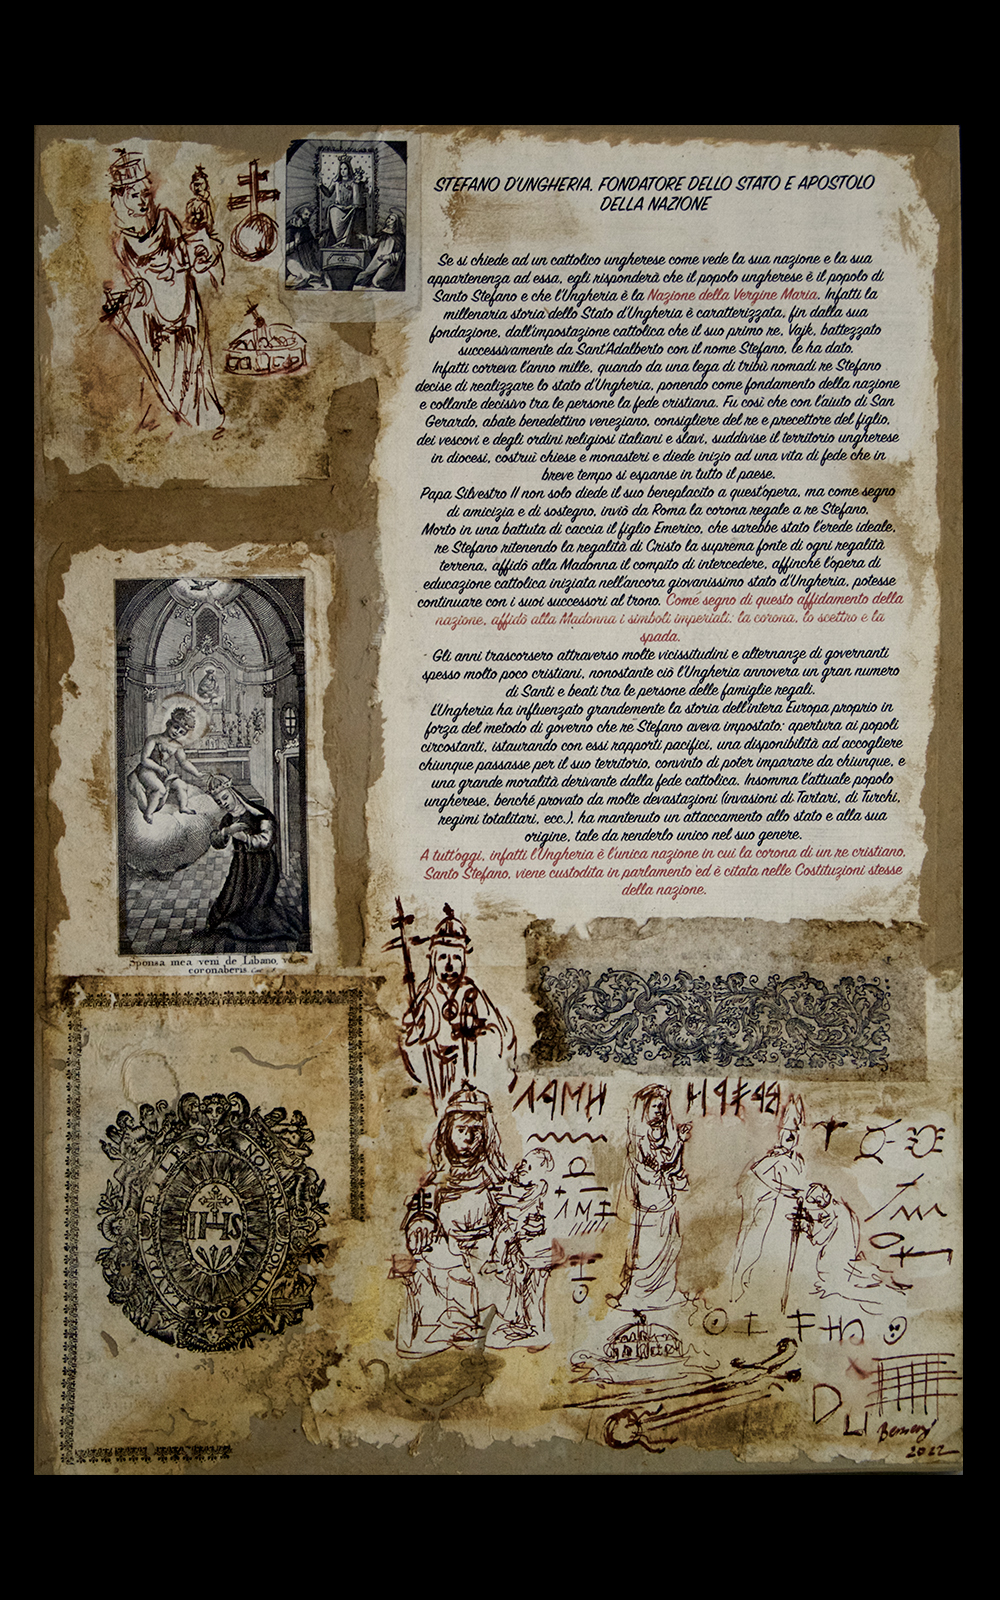 STEFANO D'UNGHERIA, FONDATORE DELLO STATO E APOSTOLO
DELLA NAZIONE
Se si chiede ad un cattolico ungherese come vede la sua nazione e la sua
appartenenza ad essa, egli risponderà che il popolo ungherese è il popolo di
Santo Stefano e che l'Ungheria è la Nazione della Vergine Maria. Infatti la
millenaria storia dello Stato d'Ungheria è caratterizzata, fin dalla sua
fondazione, dall'impostazione cattolica che il suo primo re, Vajk, battezzato
successivamente da Sant'Adalberto con il nome Stefano, le ha dato.
Infatti correva l'anno mille, quando da una lega di tribù nomadi re Stefano
decise di realizzare lo stato d'Ungheria, ponendo come fondamento della nazione
e collante decisivo tra le persone la fede cristiana. Fu così che con l'aiuto di San
Gerardo, abate benedettino veneziano, consigliere del re e precettore del figlio,
dei vescovi e degli ordini religiosi italiani e slavi, suddivise il territorio ungherese
in diocesi, costruì chiese e monasteri e diede inizio ad una vita di fede che in
breve tempo si espanse in tutto il paese.
Papa Silvestro II non solo diede il suo beneplacito a quest'opera, ma come segno
di amicizia e di sostegno, inviò da Roma la corona regale a re Stefano.
Morto in una battuta di caccia il figlio Emerico, che sarebbe stato l'erede ideale,
re Stefano ritenendo la regalità di Cristo la suprema fonte di ogni regalità
terrena, affidò alla Madonna il compito di intercedere, affinché l'opera di
educazione cattolica iniziata nell'ancora giovanissimo stato d'Ungheria, potesse
continuare con i suoi successori al trono. Come segno di questo affidamento della
nazione, affidò alla Madonna i simboli imperiali: la corona, lo scettro e la
spada.
Gli anni trascorsero attraverso molte vicissitudini e alternanze di governanti
spesso molto poco cristiani, nonostante ciò l'Ungheria annovera un gran numero
di Santi e beati tra le persone delle famiglie regali.
L'Ungheria ha influenzato grandemente la storia dell'intera Europa proprio in
forza del metodo di governo che re Stefano aveva impostato: apertura ai popoli
circostanti, istaurando con essi rapporti pacifici, una disponibilità ad accogliere
chiunque passasse per il suo territorio, convinto di poter imparare da chiunque, e
una grande moralità derivante dalla fede cattolica. Insomma l'attuale popolo
ungherese, benché provato da molte devastazioni (invasioni di Tartari, di Turchi,
regimi totalitari, ecc.), ha mantenuto un attaccamento allo stato e alla sua
origine, tale da renderlo unico nel suo genere.
A tutt'oggi, infatti l'Ungheria è l'unica nazione in cui la corona di un re cristiano,
Santo Stefano, viene custodita in parlamento ed è citata nelle Costituzioni stesse
della nazione.
Sponsa mea veni de Libano,
coronaberis
LAUDABILE NOMEN DOMINI
IHS
2022